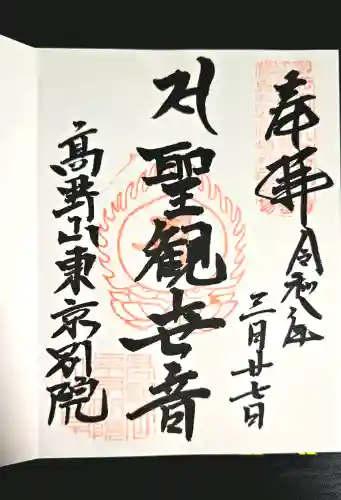 奉拝
令和年
三月廿七日
聖観世音
髙野山東京別院